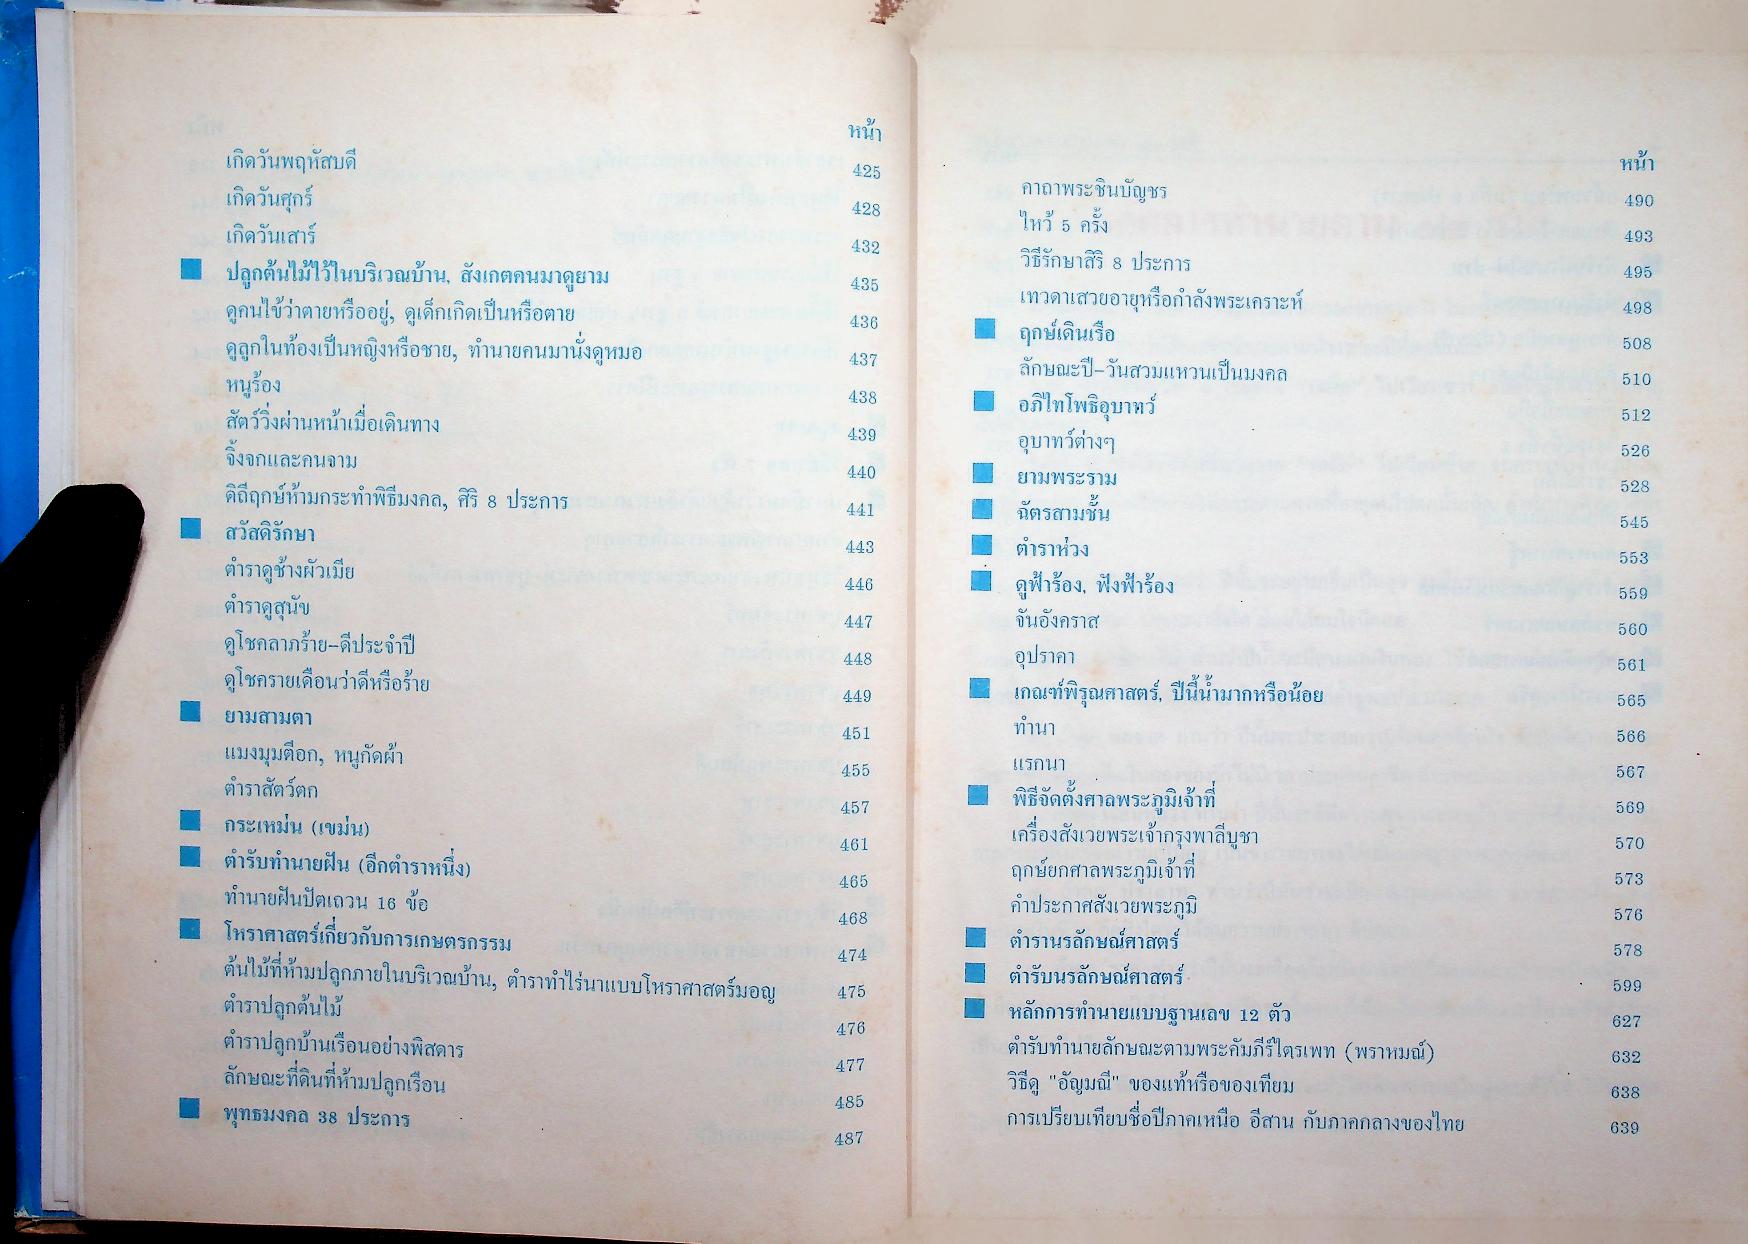 หน้า
เกิดวันพฤหัสบดี 425
เกิดวันศุกร์ 428
เกิดวันเสาร์ 432
ปลูกต้นไม้ไว้ในบริเวณบ้าน, สังเกตคนมาดูยาม 435
ดูคนไข้ว่าตายหรืออยู่, ดูเด็กเกิดเป็นหรือตาย 436
ดูลูกในท้องเป็นหญิงหรือชาย, ทำนายคนมานั่งดูหมอ 437
หนูร้อง 438
สัตว์วิ่งผ่านหน้าเมื่อเดินทาง 439
จิ้งจกและคนจาม 440
ดิถีฤกษ์ห้ามกระทำพิธีมงคล, ศิริ 8 ประการ 441
สวัสดิรักษา 443
ตำราดูช้างผัวเมีย 446
ตำราดูสุนัข 447
ดูโชคลาภร้าย-ดีประจำปี 448
ดูโชครายเดือนว่าดีหรือร้าย 449
ยามสามตา 451
แมงมุมตีอก, หนูกัดผ้า 455
ตำราสัตว์ตก 457
กระเหม่น (เขม่น) 461
ตำรับทำนายฝัน (อีกตำราหนึ่ง) 465
ทำนายฝันปัตเถวน 16 ข้อ 468
โหราศาสตร์เกี่ยวกับการเกษตรกรรม 474
ต้นไม้ที่ห้ามปลูกภายในบริเวณบ้าน, ตำราทำไร่นาแบบโหราศาสตร์มอญ 475
ตำราปลูกต้นไม้ 476
ตำราปลูกบ้านเรือนอย่างพิสดาร 477
ลักษณะที่ดินที่ห้ามปลูกเรือน 485
พุทธมงคล 38 ประการ 487
หน้า
คาถาพระชินบัญชร 490
ไหว้ 5 ครั้ง 493
วิธีรักษาสิริ 8 ประการ 495
เทวดาเสวยอายุหรือกำลังพระเคราะห์ 498
ฤกษ์เดินเรือ 508
ลักษณะปี-วันสวมแหวนเป็นมงคล 510
อภิไทโพธิอุบาทว์ 512
อุบาทว์ต่างๆ 526
ยามพระราม 528
ฉัตรสามชั้น 545
ตำราห่วง 553
ดูฟ้าร้อง, ฟังฟ้าร้อง 559
จันอังคราส 560
อุปราคา 561
เกณฑ์พิรุณศาสตร์, ปีนี้น้ำมากหรือน้อย 565
ทำนา 566
แรกนา 567
พิธีจัดตั้งศาลพระภูมิเจ้าที่ 569
เครื่องสังเวยพระเจ้ากรุงพาลีบูชา 570
ฤกษ์ยกศาลพระภูมิเจ้าที่ 573
คำประกาศสังเวยพระภูมิ 576
ตำรานรลักษณ์ศาสตร์ 578
ตำรับนรลักษณ์ศาสตร์ 599
หลักการทำนายแบบฐานเลข 12 ตัว 627
ตำรับทำนายลักษณะตามพระคัมภีร์ไตรเพท (พราหมณ์) 632
วิธีดู "อัญมณี" ของแท้หรือของเทียม 638
การเปรียบเทียบชื่อปีภาคเหนือ อีสาน กับภาคกลางของไทย 639